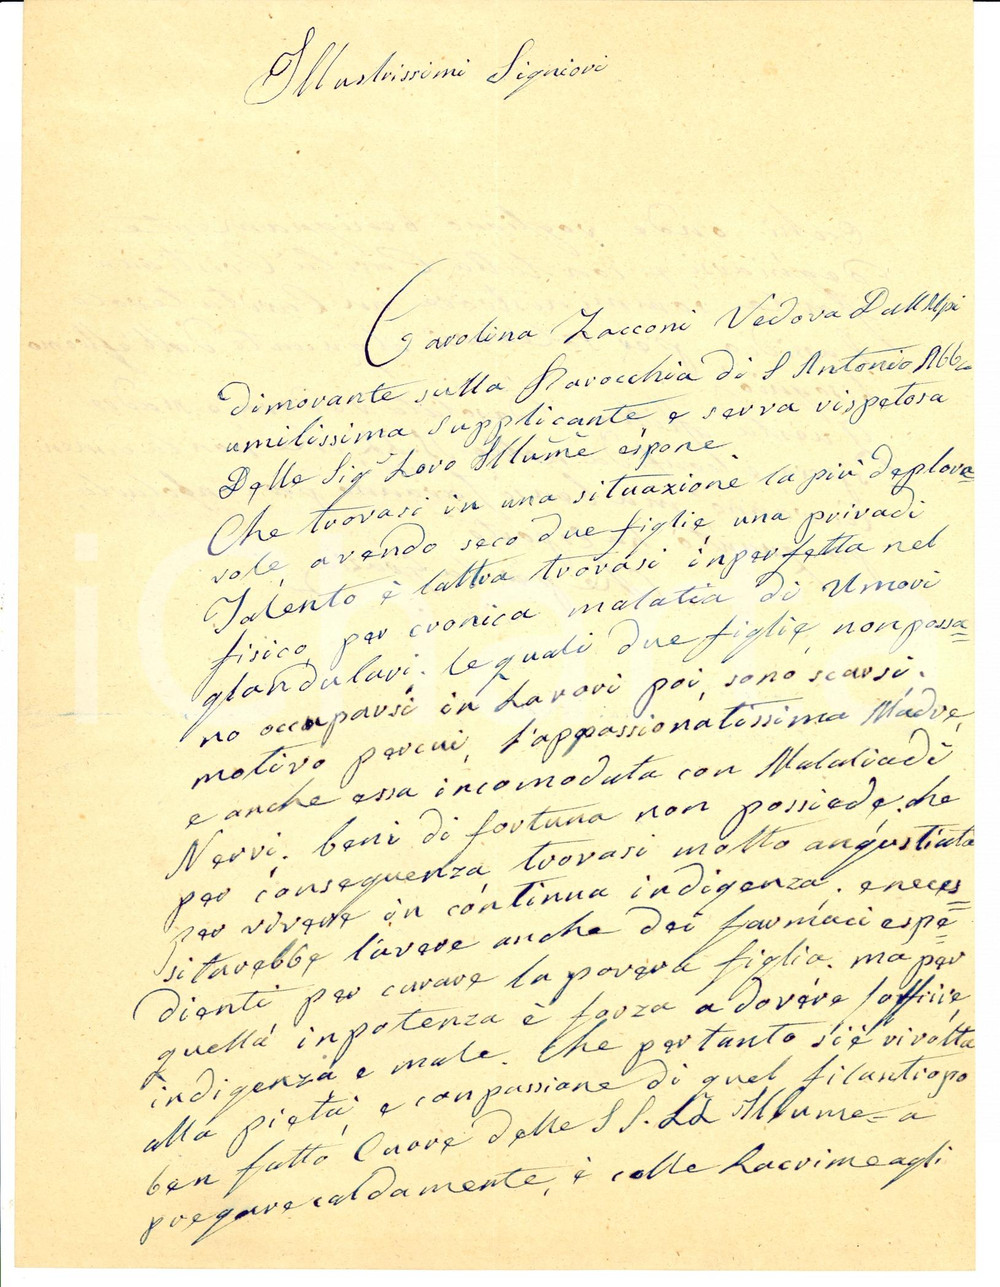 Illustrissimi Signiori
Carolina Zacconi Vedova Dall'Alpi
dimorante sulla Parocchia di S Antonio Abb
umilissima supplicante, e serva rispetosa
Delle Sig.e Loro Illume espone
Che trovasi in una situazione la più deplora=
vole avendo seco due figlie una privadi
Talento è lattra trovasi inperfetta nel
fisico per cronica malatia di Umori
glandulari. le quali due figlie nonpossa=
no occuparsi in Lavori poi sono scarsi.
motivo percui, l'appassionatissima Madre,
e anche essa incomodata con Malatiadi
Nervi. beni di fortuna non possiede. che
per conseguenza trovasi molto angustiata
per vivere in continua indigenza. eneces=
sitarebbe l'avere anche dei farmaci espe=
dienti per curare la povera figlia. ma per
quella inpotenza è forza adovere soffrire,
indigenza e male. Che pertanto siè rivolta
alla pietà, e conpassione di quel filantropo
ben fatto Cuore delle SS. LL Illume= a
pregarecaldamente, è colle Lacrimeagli
iCharta